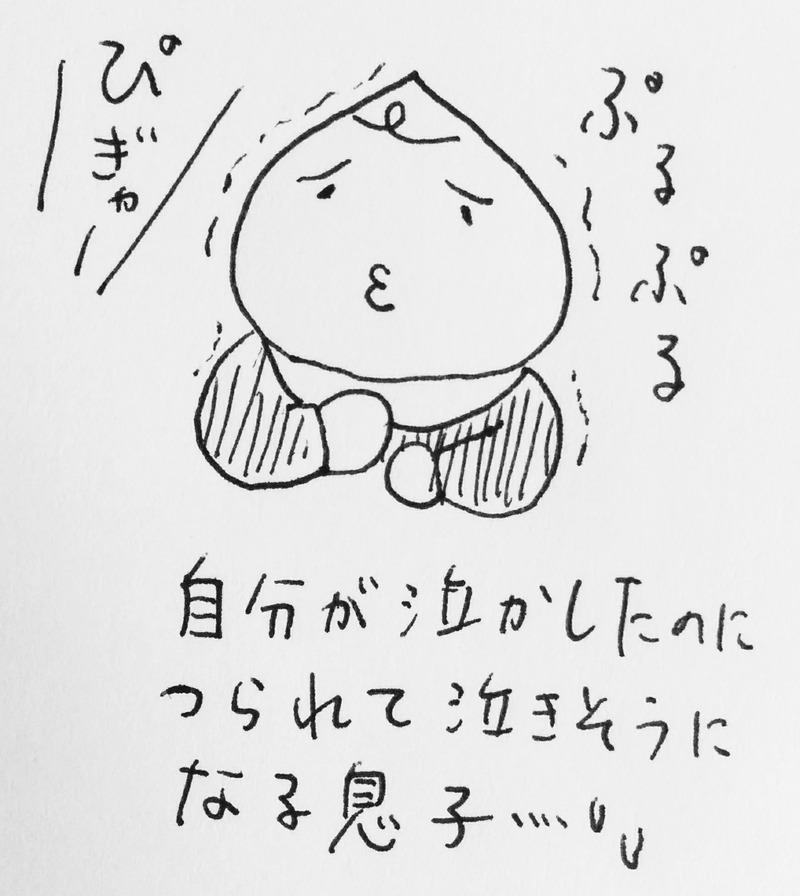 ぴぎゃ
ぷるぷる
自分が泣かしたのに
つられて泣きそうに
なる息子…